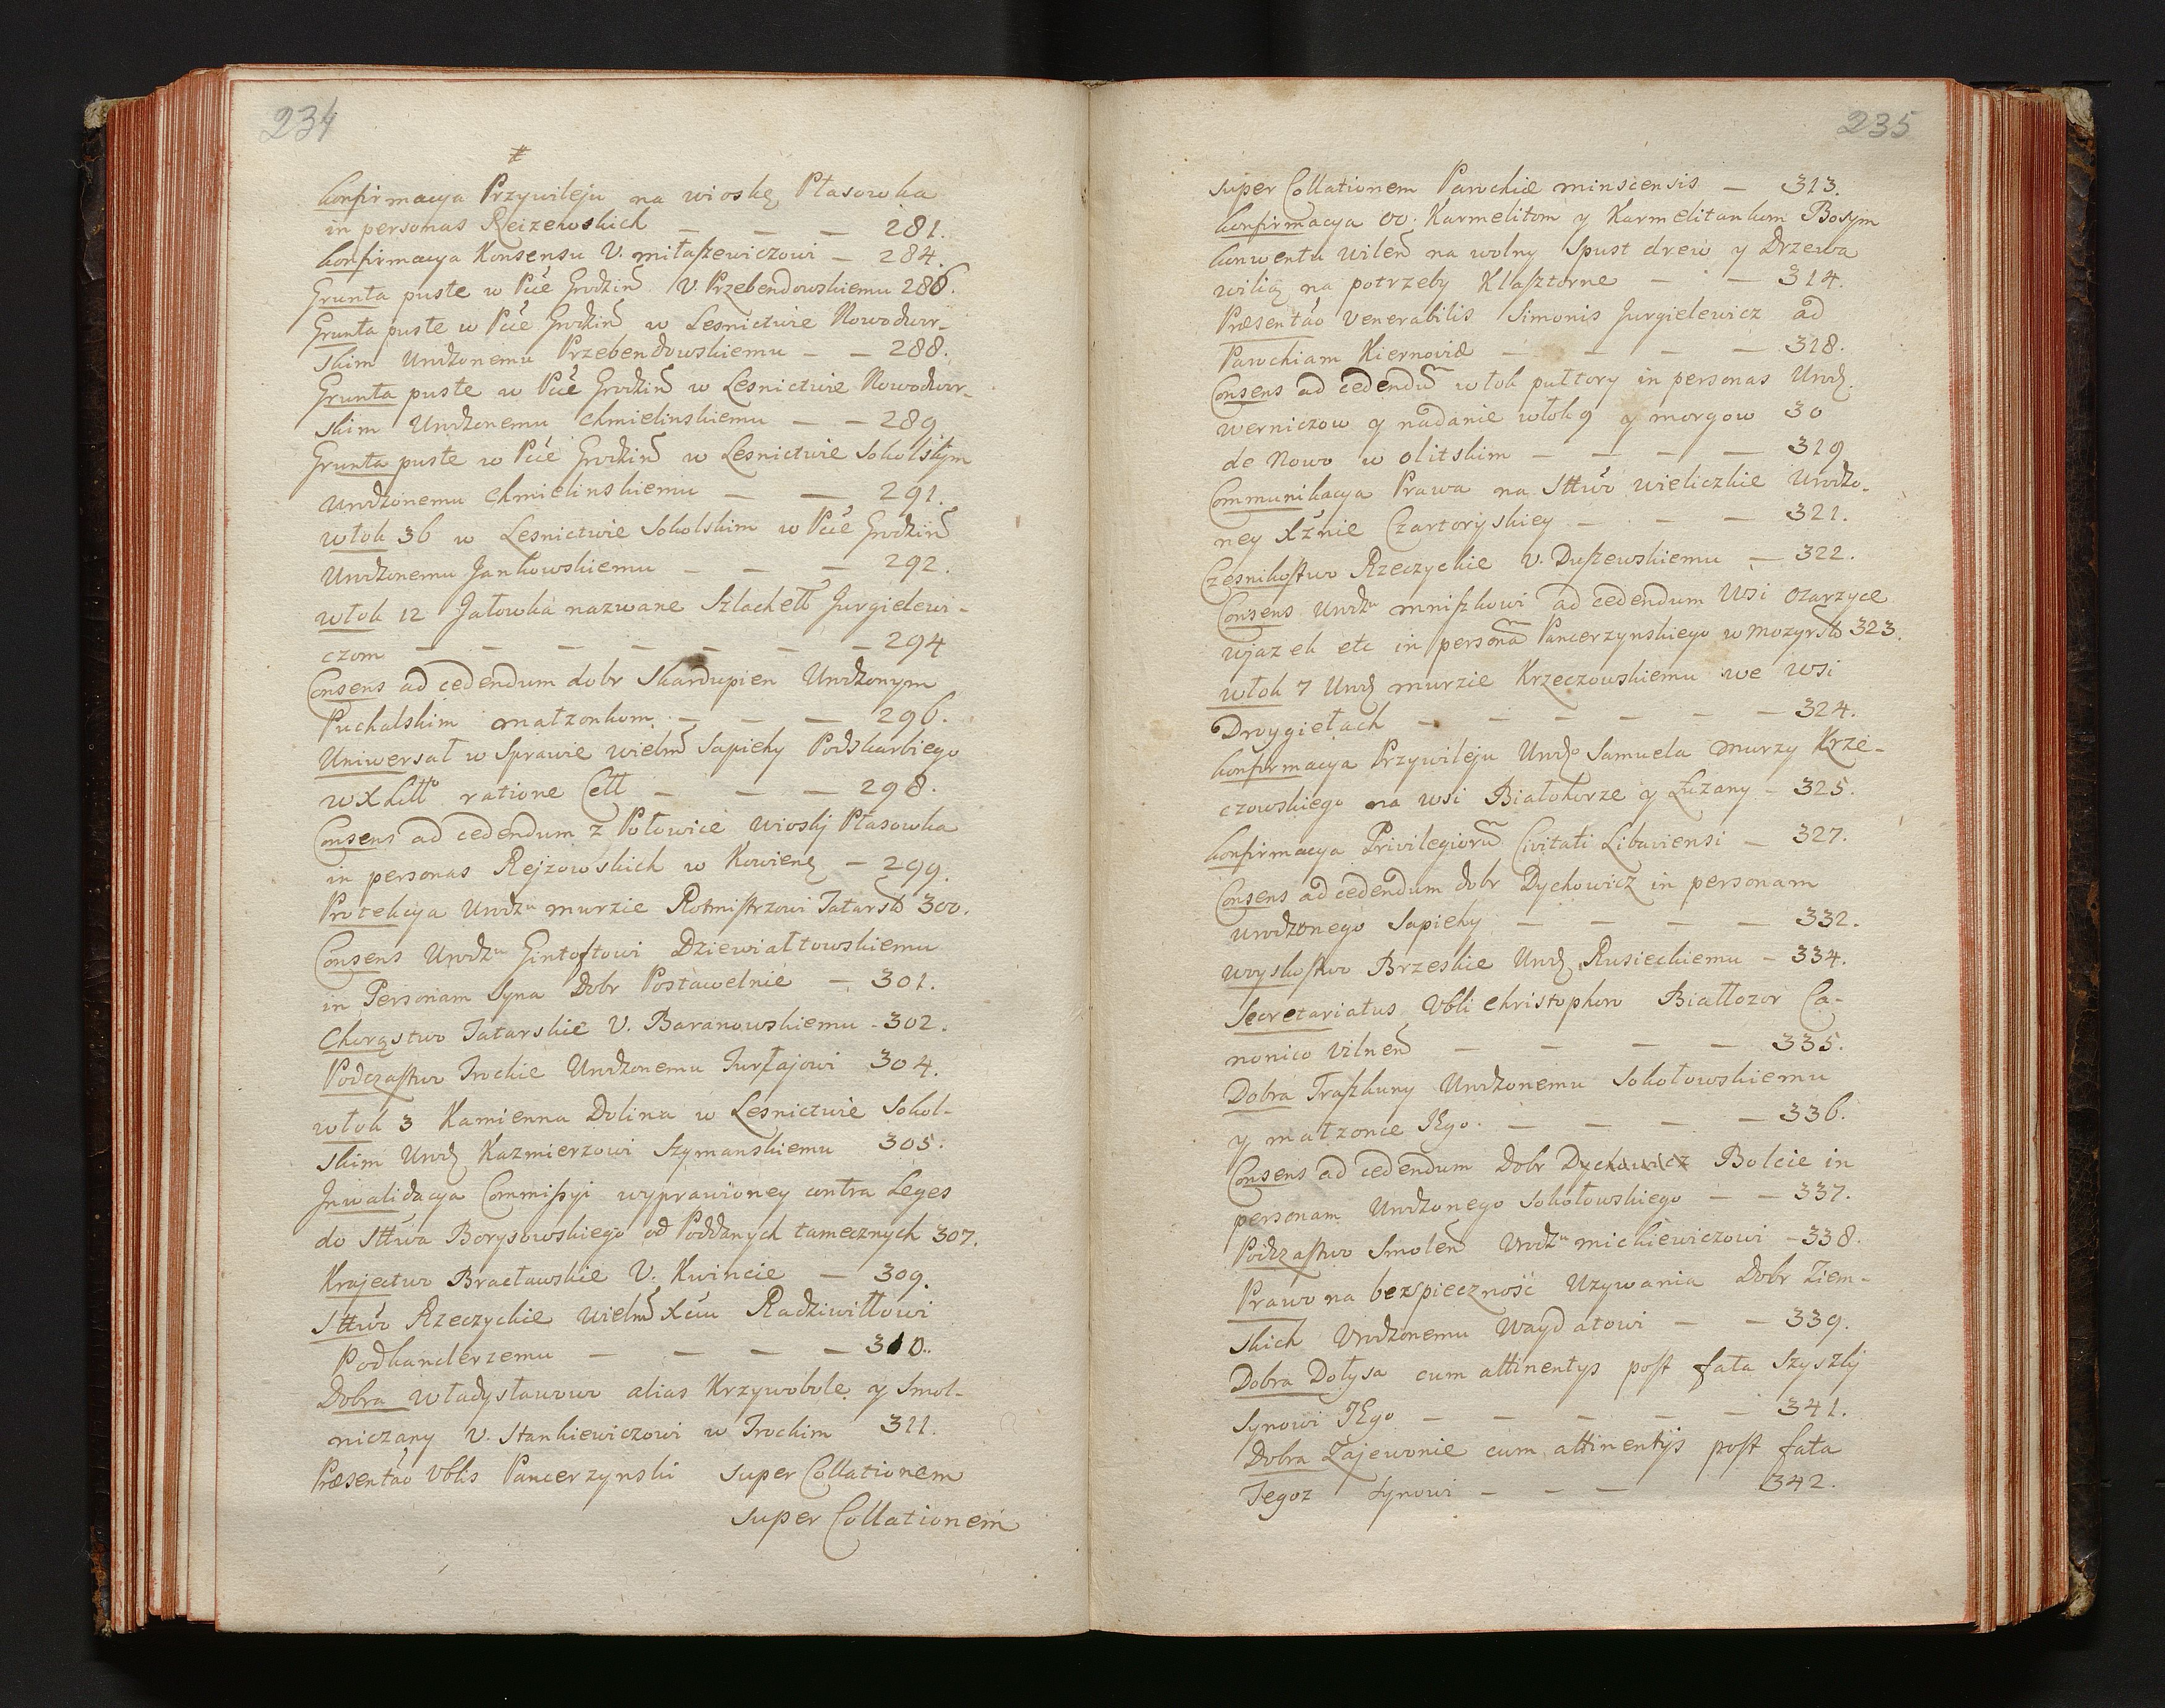 234
#
konfirmacya Przywileju na wioskę Ptasowka
in personas Reizewskich — — — 281.
konfirmacya Konsensu V. miłaszewiczowi — 284.
Grunta puste w Pcie Grodzin̄ V. Przebendowskiemu 286.
Grunta puste w Pcie Grodzin̄ w Lesnictwie Nowodwor-
skim Urodzonemu Przebendowskiemu — — 288.
Grunta puste w Pcie Grodzin̄ w Lesnictwie Nowodwor-
skim Urodzonemu chmielinskiemu — — 289
Grunta puste w Pcie Grodzin̄ w Lesnictwie Sokolskym
Urodzonemu chmielinskiemu — — 291.
włok 36 w Lesnictwie Sokolskim w Pcie Grodzin̄
Urodzonemu Jankowskiemu — — — 292.
włok 12 Jałowka nazwane Szlachett Jurgielewi-
czom — — — — — — — 294
Consens ad cedendum dobr Skardupien Urodzonym
Puchalskim małzonkom — — — 296.
Uniwersał w Sprawie wielm̄ Sapiehy Podskarbiego
WXLitto ratione Cett — — — 298.
Consens ad cedendum z Połowice wioskj Ptasowka
in personas Rejzowskich w Kowienȩ — 299.
Protekcya Urodzu murzie Rotmistrzowi Tatarsk̄ 300.
Consens Urodzu Gintostowi Dziewiałtowskiemu
in Personam Syna Dobr Postawelnie — 301.
Chorąstwo Tatarskie V. Baranowskiemu - 302.
Podczastwo Trockie Urodzonemu Turłajowi 304.
włok 3 Kamienna Dolina w Lesnictwie Sokol-
skim Urodz Kazmierzowi Szymanskiemu 305.
Inwalidacya Commissyi wyprawioney contra Leges
do Sttwa Borysowskiego od Poddanych tamecznych 307.
Krajectwo Bracławskie V. Kwincie — 309.
Sttwo Rzeczyckie wielm̄ Xciu Radziwiłłowi
Podkanclerzemu — — — — 310.
Dobra władysławowo alias Krzywobole y Smol-
niczany V. Stankiewiczowi w Trockim 311.
Præsentao Vblis Pancerzynski super Collationem
super Collationem
235
super Collationem Parochiæ minscensis — 313.
konfirmacya OO. Karmelitom y Karmelitankom Bosym
konwentu wilen̄ na wolny spust drew y Drzewa
wilią na potrzeby Klasztorne — — 314.
Præsentao Venerabilis Simonis Jurgielewicz ad
Parochiam Kiernoviæ — — — — 318.
Consens ad cedendum̄ włok pułtory in personas Urodz.
werniczow y nadanie włok 9 y morgow 30
de Nowo w olitskim — — — — 319
Communikacya Prawa na Sttwo wieliczkie Urodzo-
ney Xżnie Czartoryskiey — — — 321.
Czesnikostwo Rzeczyckie V. Duszewskiemu — 322.
Consens Urodzu mniszkowi ad cedendum Wsi Ozarzyce
ujazek etc in persona̅ Pancerzynskiego w Mozyrsk̄ 323.
włok 7 Urodz murzie Krzeczowskiemu we wsi
Drvygiełach — — — — — — 324.
konfirmacya Przywileju Urodzo Samuela murzy Krze-
czowskiego na wsi Białohorze y Łuzany - 325.
konfirmacya Privilegioru̅ Civitati Libaviensi — 327.
Consens ad cedendum dobr Dychowicz in personam
urodzonego Sapiehy — — — — 332.
woyskostwo Brzeskie Urodz Rusieckiemu — 334.
Secretariatus Vbli christophoro Biallozor Ca-
nonico vilnen̄ — — — — 335.
Dobra Traszkuny Urodzonemu Sokołowskiemu
y małzonce JEgo. — — — — 336.
Consens ad cedendum Dobr Dychowicz Bolcie in
personam Urodzonego Sokołowskiego — — 337.
Podczastwo Smolen̄ Urodzu mickiewiczowi — 338.
Prawo na bezpieczność Uzywania Dobr Ziem-
skich Urodzonemu Waydatowi — — 339.
Dobra Dołysa cum attinentys post fata Szyszkj
Synowi JEgo — — — — — 341.
Dobra Zajewonie cum attinentijs post fata
Tegoz Synowi — — — 342.